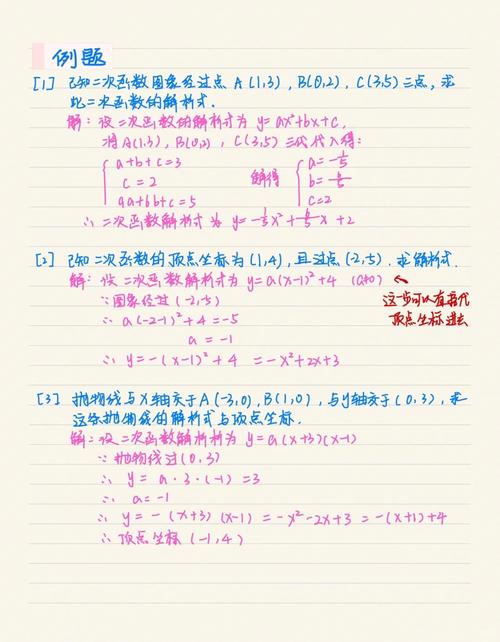 例题
[1] 已知二次函数图象经过点 A(1,3), B(0,2), C(3,5)三点, 求
此二次函数的解析式.
解: 设二次函数的解析式为 y=ax²+bx+c,
将A(1,3), B(0,2), C(3,5)三代代入得:
a+b+c=3
c=2
9a+6b+c=5
解得
a=-1/5
b=6/5
c=2
∴二次函数解析式为 y=-1/5x²+6/5x+2
[2] 已知二次函数的顶点坐标为(1,4), 且过点(-2,-5). 求解析式.
解: 设二次函数解析式为 y=a(x-1)²+4 (a≠0)
这一步可以直接代
顶点坐标进去
∵图象经过(-2,-5)
∴ a(-2-1)²+4=-5
a=-1
∴ y=-(x-1)²+4 =-x²+2x+3
[3] 抛物线与x轴交于A(-3,0), B(1,0), 与y轴交于(0,3), 求
这条抛物线的解析式与顶点坐标.
解: 设二次函数解析析为 y=a(x+3)(x-1)
∵ 抛物线过(0,3)
∴ y=a·3·(-1)=3
∴ a=-1
∴ y=-(x+3)(x-1)=-x²-2x+3=-(x+1)+4
∴ 顶点坐标(-1,4)